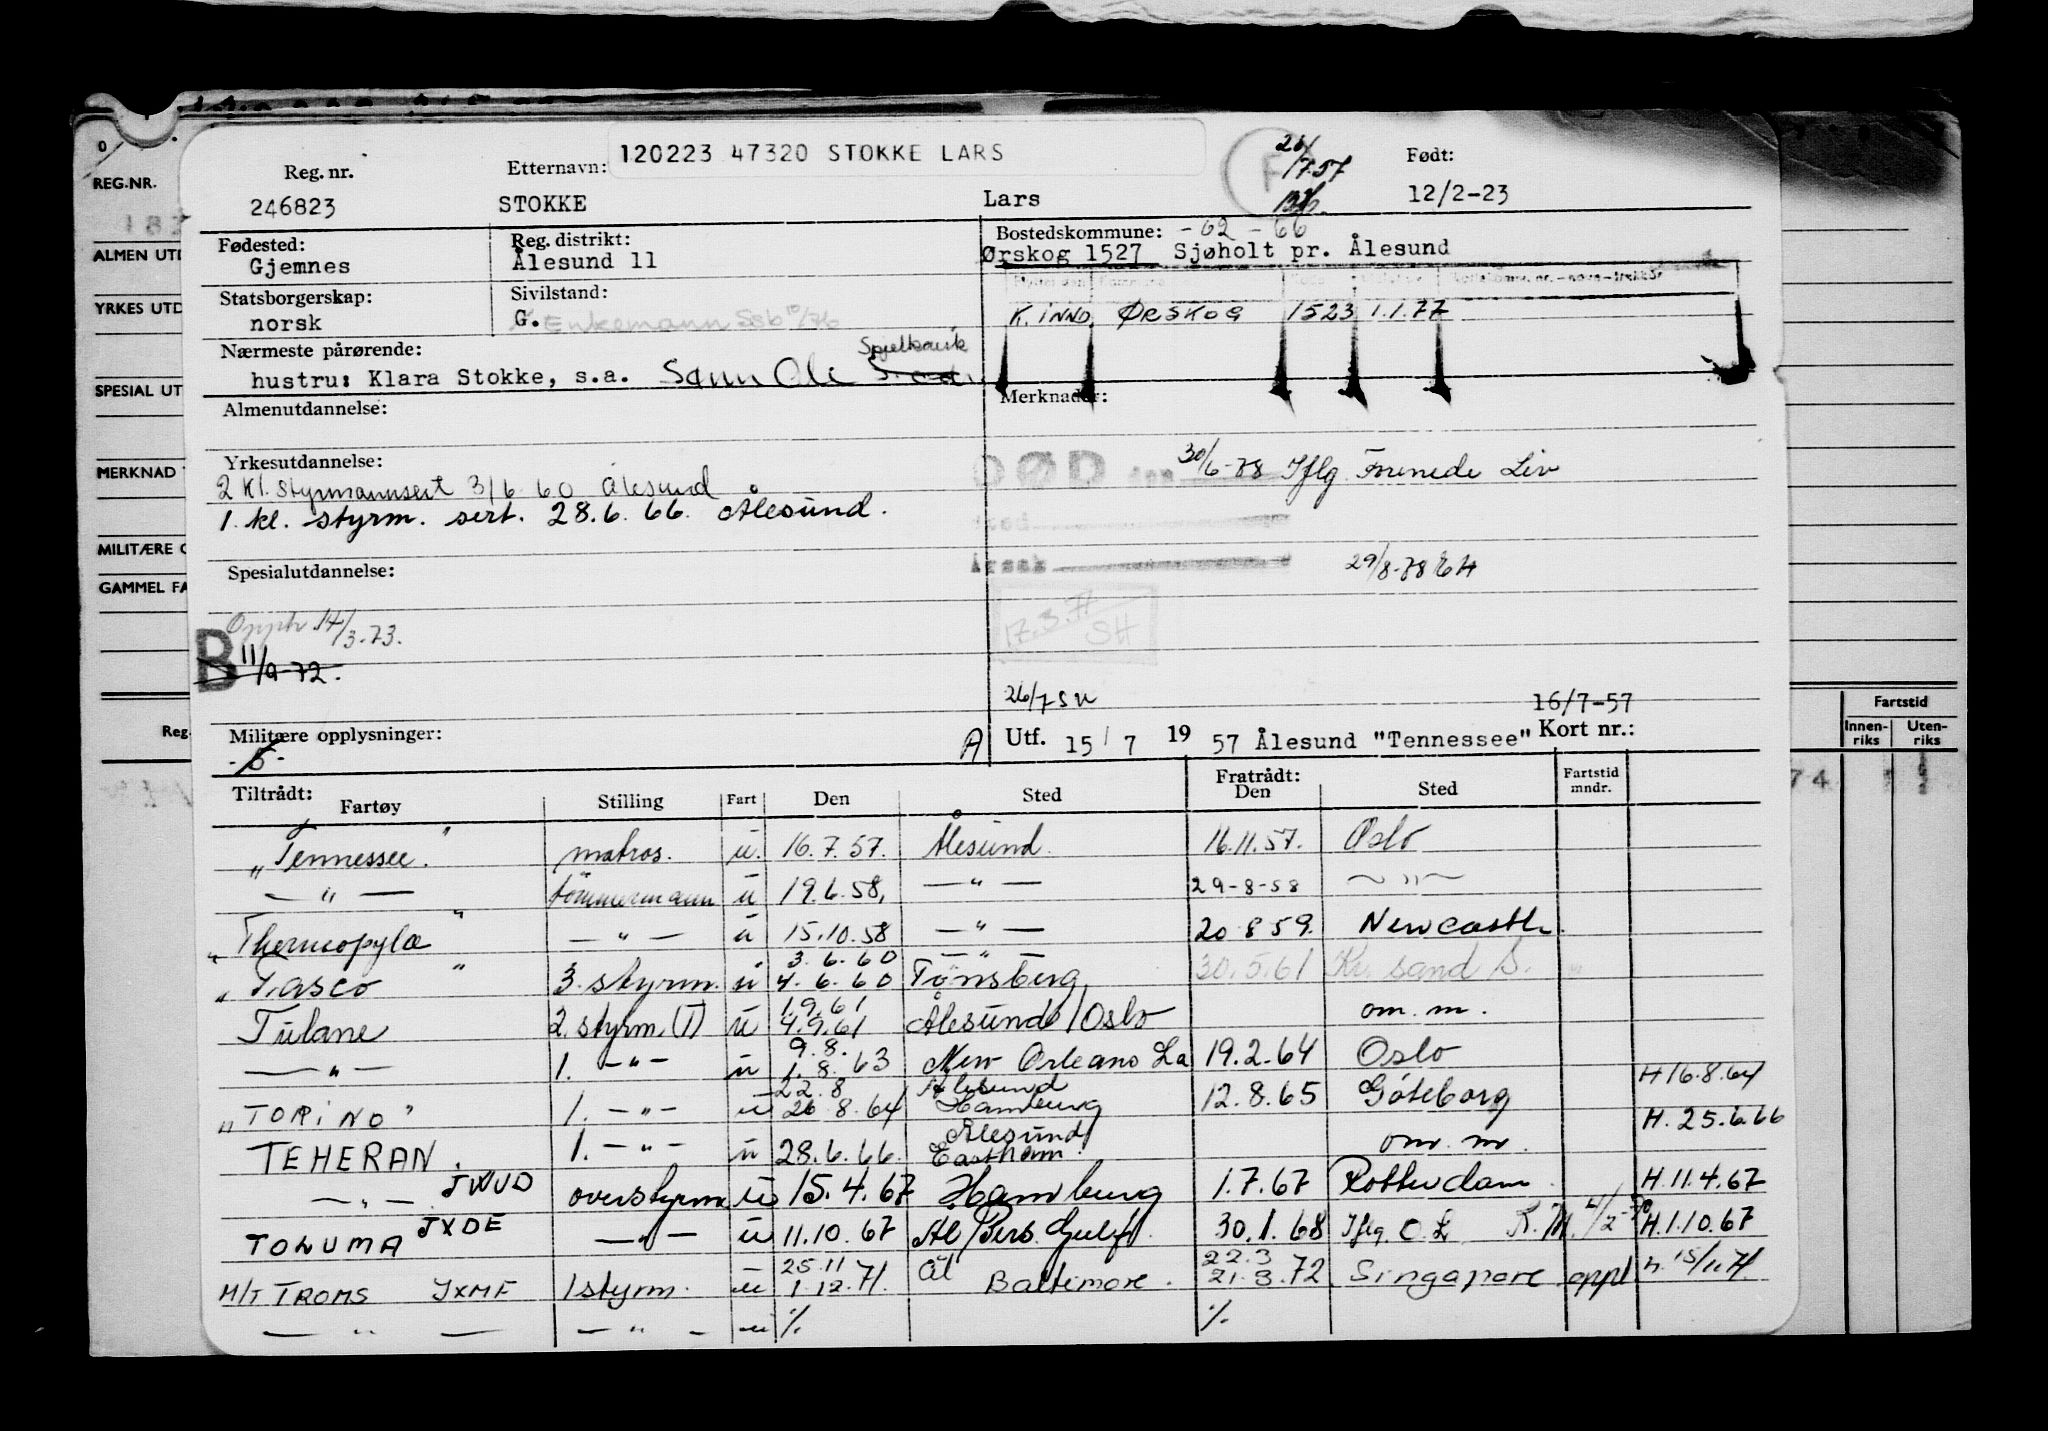 120223 47320 STOKKE LARS
Reg. nr. Etternavn: Født:
246823 STOKKE Lars 12/2-23
26/7.57
Fødested: Reg. distrikt: Bostedskommune: -62-66
Gjemnes Ålesund 11 Ørskog 1527 Sjøholt pr. Ålesund
Statsborgerskap: Sivilstand:
norsk G. Enkemann
K. INND. ØRSKOG 1523 1.1.77
Nærmeste pårørende: Spjelkavik
hustru: Klara Stokke, s.a. Sønn Ole
Almenutdannelse: Merknader:
Yrkesutdannelse:
DØD den 30/6-78 Iflg. Forenede Liv
2 kl. styrmannsert 3/6 60 Ålesund
1. kl. styrm. sert. 28.6.66. Ålesund.
Sted
Årsak 29/8-78
Spesialutdannelse:
17.3.71 SH
Opph 14/3-73.
B 11/9-72.
26/7 16/7-57
Militære opplysninger: A Utf. 15/7 1957 Ålesund "Tennessee" Kort nr.:
Tiltrådt: Fratrådt:
Fartøy Stilling Fart Den Sted Den Sted Fartstid mndr.
"Tennessee." matros. u. 16.7.57. Ålesund. 16.11.57. Oslo
— " — tømmermann u 19.6.58. — " — 29-8-58 — " —
"Thermopylæ" — " — u 15.10.58 — " — 20 8 59. Newcastle.
3.6.60 — " —
"Tasco" 3. styrm. u 4.6.60 Tønsberg 30.5.61 Kr. sand S.
1.9.61
Tulane 2. styrm. (I) u 4.9.61 Ålesund/Oslo om. m.
9.8.
— " — 1. — " — u 1.8.63 New Orleans La 19.2.64 Oslo
22.8 Ålesund H 16.8.64
"TORINO" 1. — " — u 26.8.64 Hamburg 12.8.65 Göteborg
Ålesund H. 25.6.66
TEHERAN. 1. — " — u 28.6.66. Eastham. om. m.
— " — JWUD overstyrm u 15.4.67 Hamburg 1.7.67 Rotterdam. H. 11.4.67
TOLUMA JXDE — " — u 11.10.67 Ål/Pers. Gulf. 30.1.68 Iflg. O.L. H. 1.10.67
25.11 Ål 22.3
M/T TROMS JXMF 1 styrm. u 1.12.71. Baltimore. 21.3.72 Singapore oppl h. 15/11.71.
— " — — " — u % %
REG.NR.
ALMEN UTD
YRKES UTD
SPESIAL UT
MERKNAD
MILITÆRE
GAMMEL FA
Reg.
Fartstid
Innen-riks Uten-riks
74